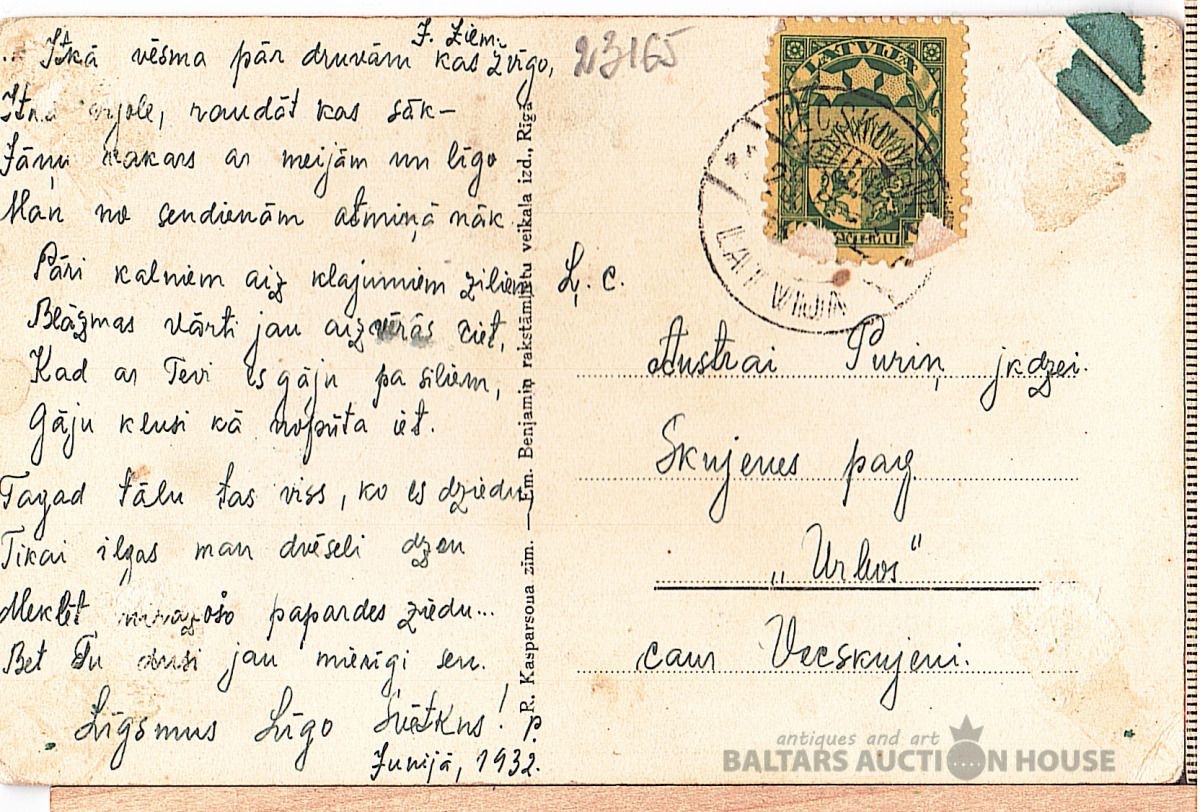 J. Ziem.
.. Itkā vēsma pār druvām kas žvīgo,
vijole, raudāt kas sāk –
Jāņu vakars ar meijām un līgo
Man no sendienām atmiņā nāk
Pāri kalniem aiz klajumiem ziliem
Blāzmas vārti jau aizvērās ciet,
Kad ar Tevi es gāju pa siliem,
Gāju klusi kā nopūta iet.
Tagad tālu tas viss, ko es dziedu,
Tikai ilgas man dvēseli dzen
Meklēt papardes ziedu...
Bet Tu dusi jau mierīgi sen.
Līgsmus Līgo Svētkus! p.
Junijā, 1932.
R. Kasparsona zīm. — Em. Benjamiņ rakstāmlietu veikala izd., Rīgā
23165
LATVIJA
LATVIJA
Ļ. c.
Austrai Puriņ jkdzei.
Skujenes pag.
„Urkos"
caur Vecskujeni.
antiques and art
BALTARS AUCTION HOUSE